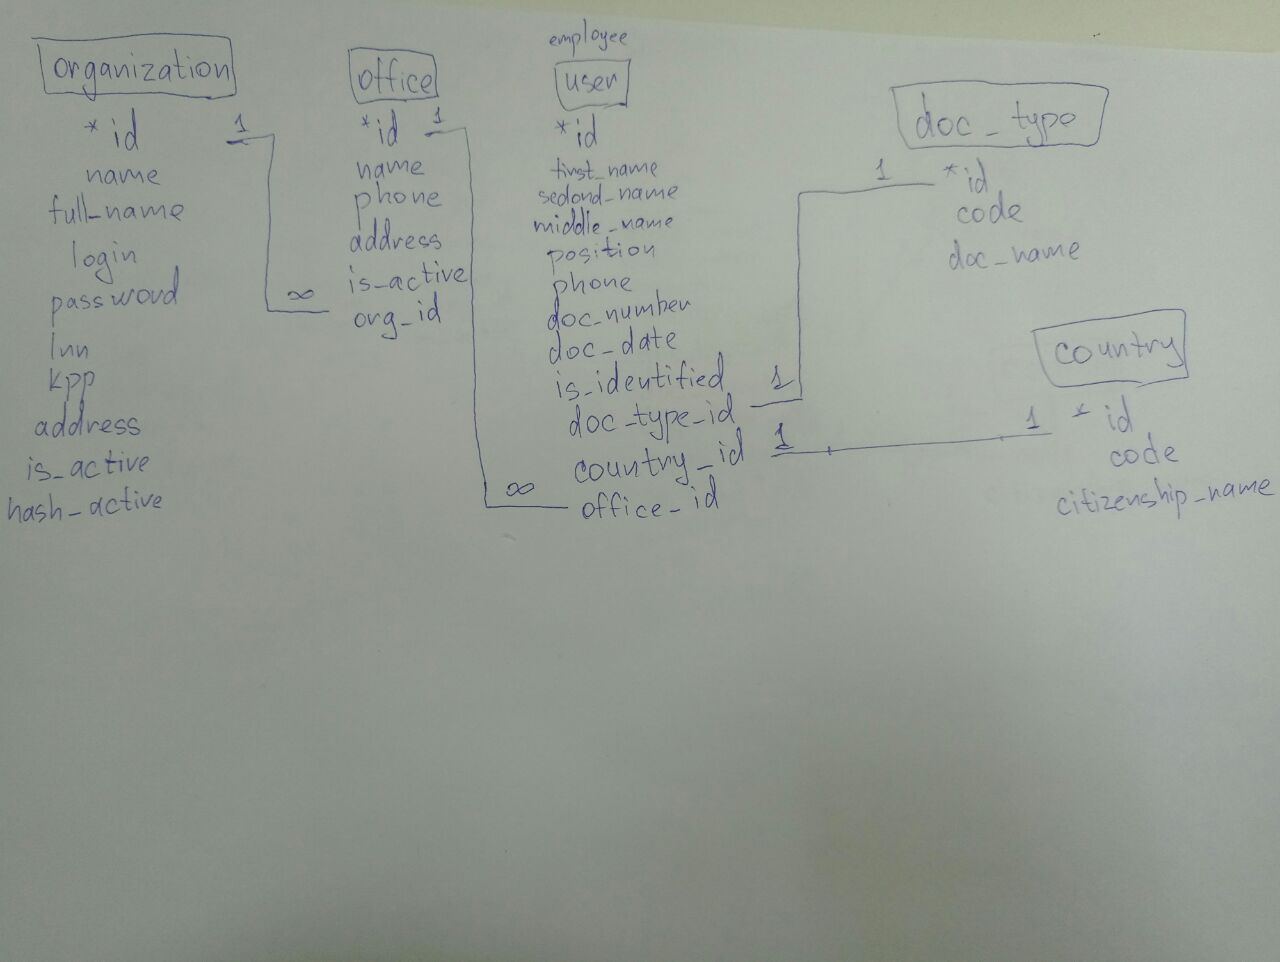 organization
* id
name
full_name
login
password
Inn
kpp
address
is_active
hash_active
1
∞
office
* id
name
phone
address
is_active
org_id
1
∞
employee
user
* id
first_name
sedond_name
middle_name
position
phone
doc_number
doc_date
is_identified
doc_type_id
country_id
office_id
1
1
doc_type
* id
code
doc_name
1
1
country
* id
code
citizenship_name